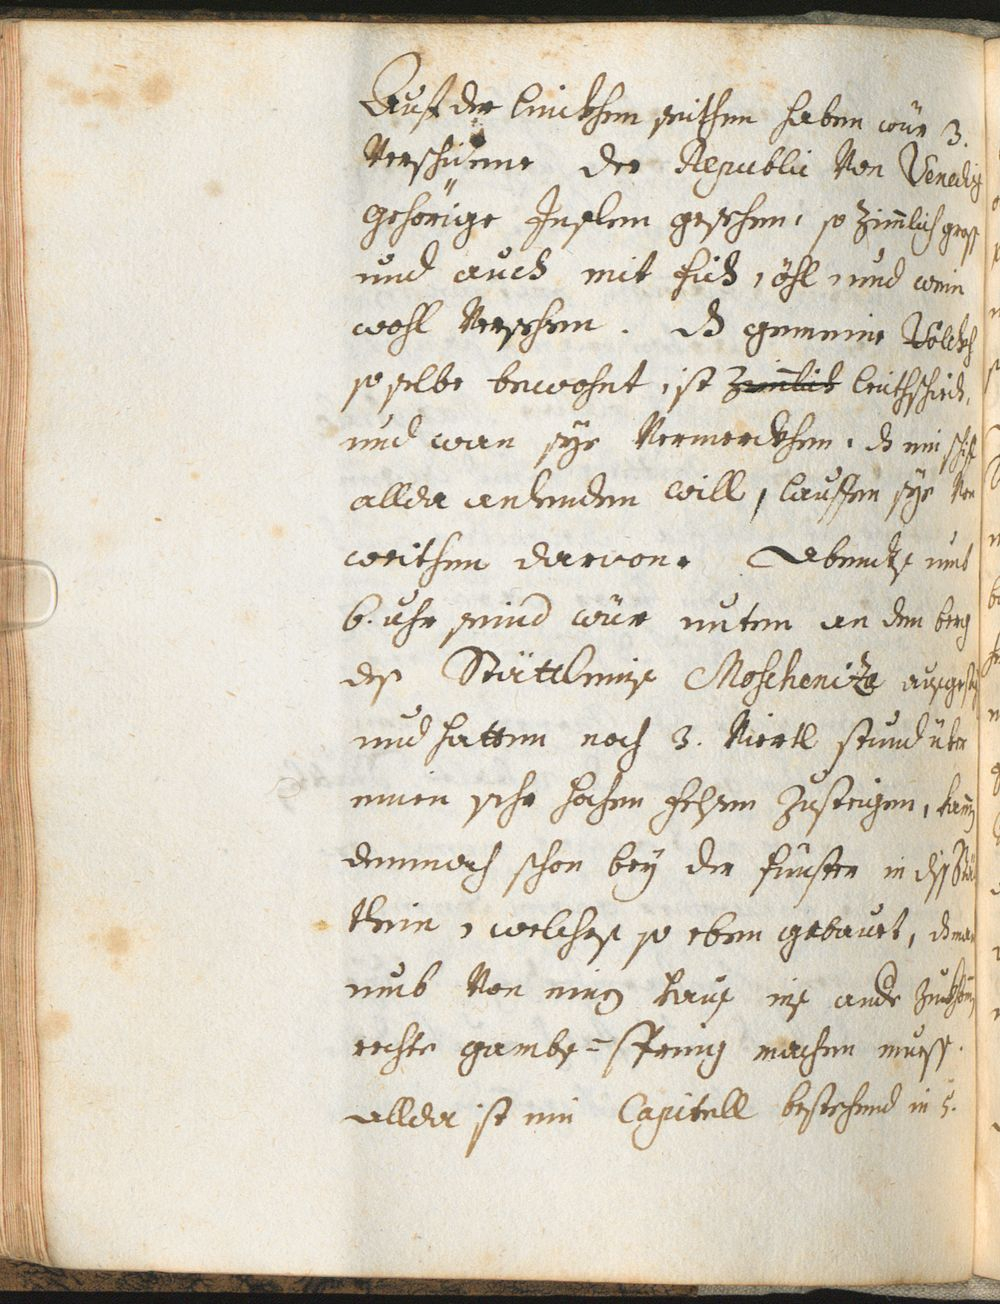 Auf der linckhen seithen haben wür 3.
Verschidene der Republic Von Venedig
gehörige Inslen gesehen, so zimlich gross
und auch mit fich, öhl, und wein
wohl Versehen. dz gemeine Volckh
so selbe bewohnt, ist zimlich leuthschich,
und wan sÿe Vermerckhen, dz ein schif
allda anlenden will, lauffen sÿe Von
weithen darvon. Abendts umb
6. uhr seind wür unten an den berg
des Stättleins Moschenitze ausgest
und hatten noch 3. Viertl stund über
einen sehr hohen felsen zusteigen,
demnach schon beÿ der finster in diss Stä
tlein, welches so eben gebauet, dz man
umb Von einem haus ins andr
rechte gambs=spring machen muess.
allda ist ein Capitell bestehend in 5.